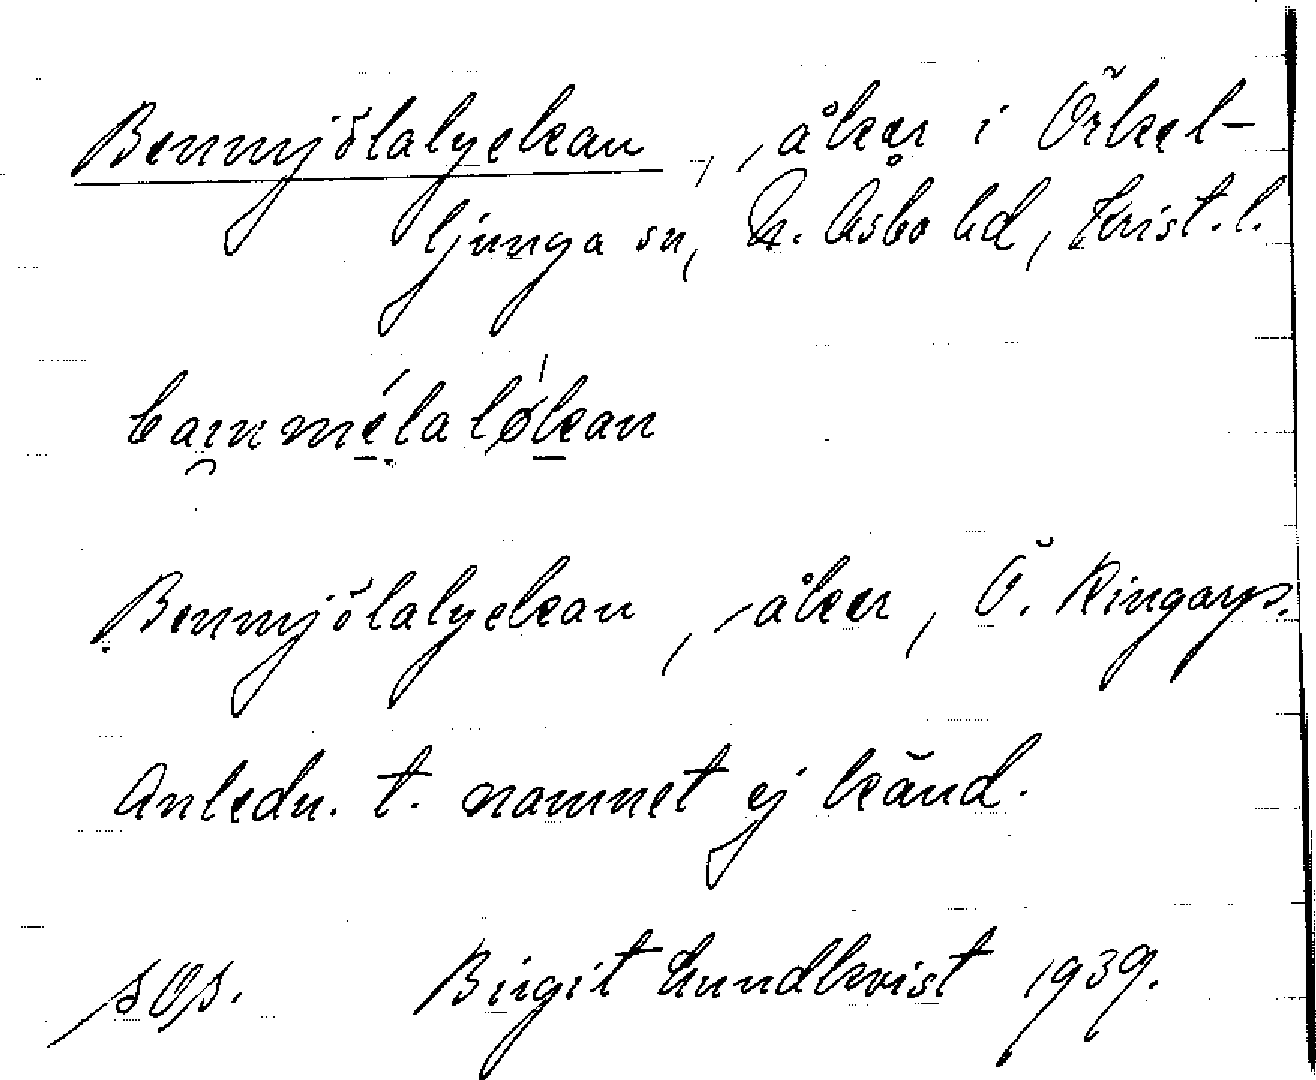 Benmjölalyckan, åker i Örkel-
ljunga sn, N. Åsbo hd, Krist. l.
Benmjölalyckan, åker, Ö. Ringarp.
Anledn. t. namnet ej känd.
SOS. Birgit Lundkvist 1939.